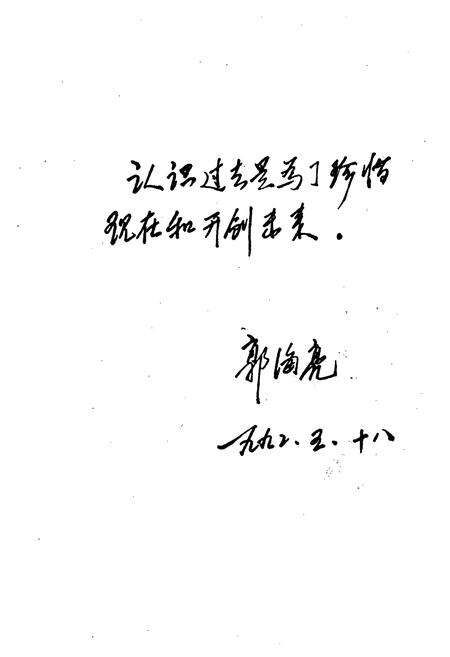 认识过去是为了珍惜
现在和开创未来.
郭海亮
一九九二.五.十八